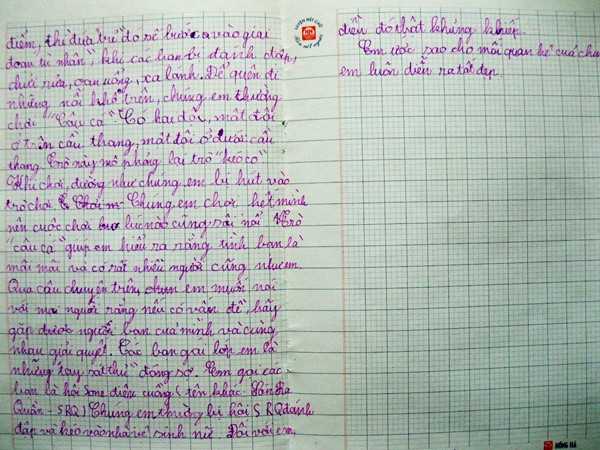 điểm, thì đứa trẻ do sẽ bước vào giai
đoạn tù nhân, khi các bạn bị đánh đập,
chửi rủa, oan uổng, xa lánh. Để quên đi
những nỗi khổ trên, chúng em thường
chơi "Câu cá". Có hai đội, một đội
ở trên cầu thang, một đội ở dưới cầu
thang. Trò này mô phỏng lại trò "kéo co"
Khi chơi, dường như chúng em bị hút vào
trò chơi. Chúng em chơi hết mình
nên cuộc chơi lúc nào cũng sôi nổi. Trò
"câu cá" giúp em hiểu ra rằng tình bạn là
mãi mãi và có rất nhiều người cũng như em.
Qua câu chuyện trên, chúng em muốn nói
với mọi người rằng nếu có vấn đề, hãy
gặp được người bạn của mình và cùng
nhau giải quyết. Các bạn gái lớp em là
những tay sát thủ đáng sợ. Em gọi các
bạn là hội Some điệu cuồng (tên khác:
Quần - SRQ) Chúng em thường bị hội SRQ đánh
đập và kéo vào nhà vệ sinh nữ. Đối với em,
điều đó thật khủng khiếp.
Em ước sao cho mối quan hệ của chúng
em luôn diễn ra tốt đẹp.
HỒNG HÀ